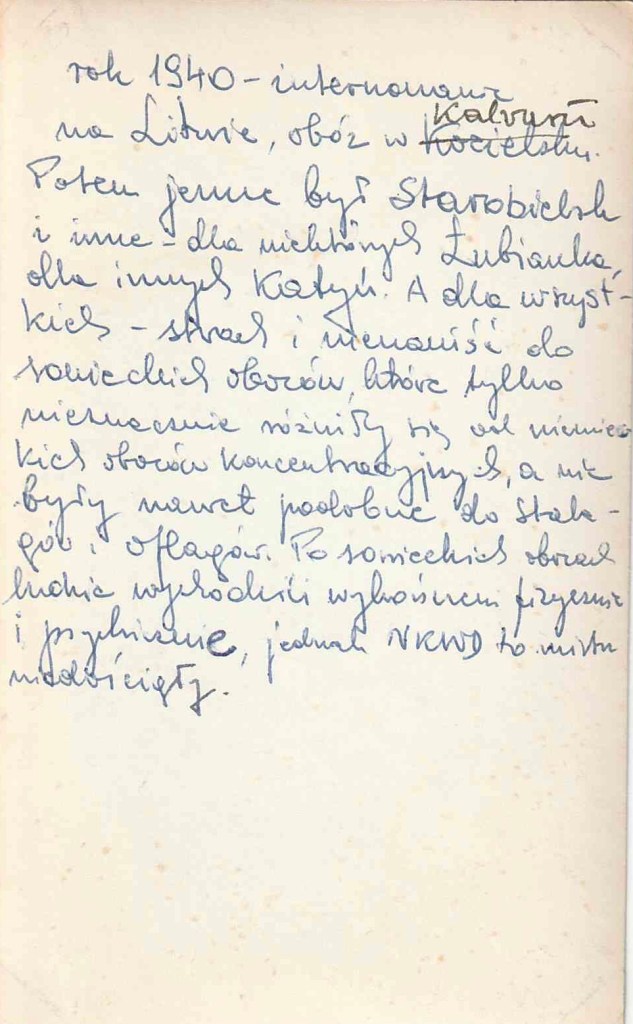 rok 1940 - internowanie
na Litwie, obóz w Kalvarii
Kozielsku.
Potem jeszcze był Starobielsk
i inne - dla niektórych Łubianka,
dla innych Katyń. A dla wszyst-
kich - strach i nienawiść do
sowieckich obozów, które tylko
nieznacznie różniły się od niemiec
kich obozów koncentracyjnych, a nie
były nawet podobne do Stala-
gów i Oflagów. Po sowieckich obozach
ludzie wychodzili wykończeni fizycznie
i psychicznie, jednak NKWD to mistrz
niedościgły.